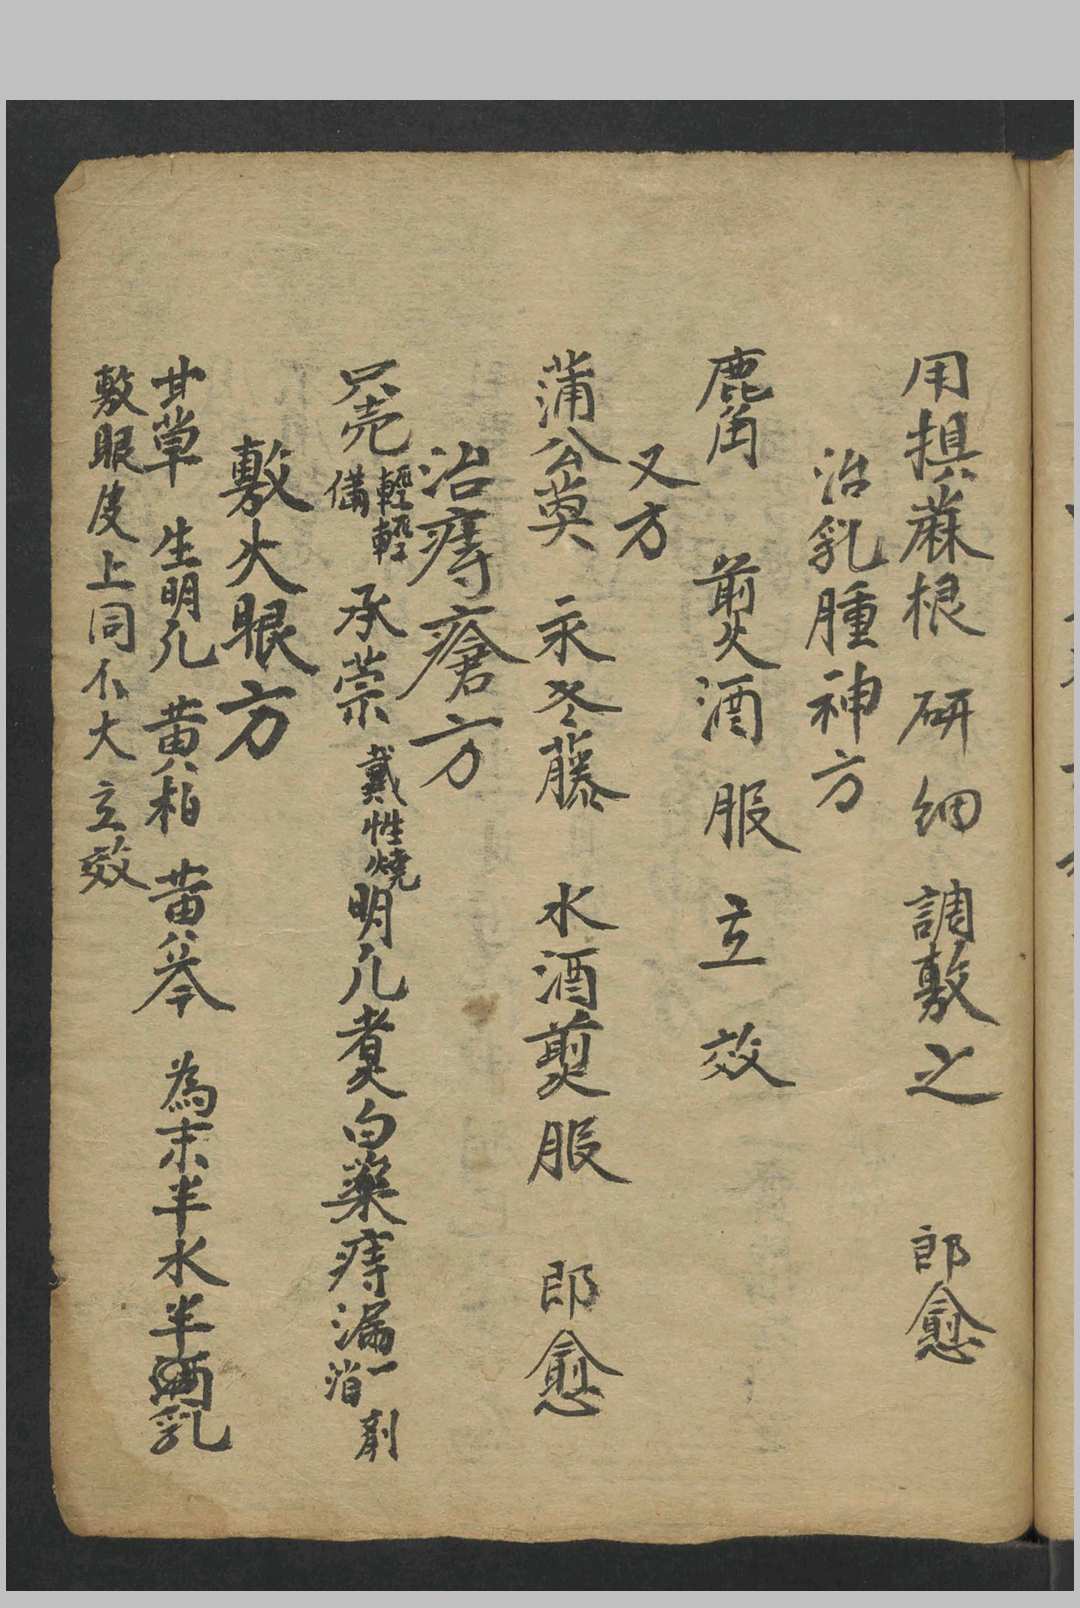 用損蔴根 研細 調敷之 郎愈
治乳腫神方
鹿角 煎酒 服 立 效
又方
蒲公英 永冬藤 水酒煎服 即愈
治痔瘡方
只壳 輕輕備 承蒿 戴性燒 明凡煮白藥痔漏一剤消
敷火眼方
甘草 生明凡 黄柏 黄芩 為末半水半乳
敷眼皮上同不大立效